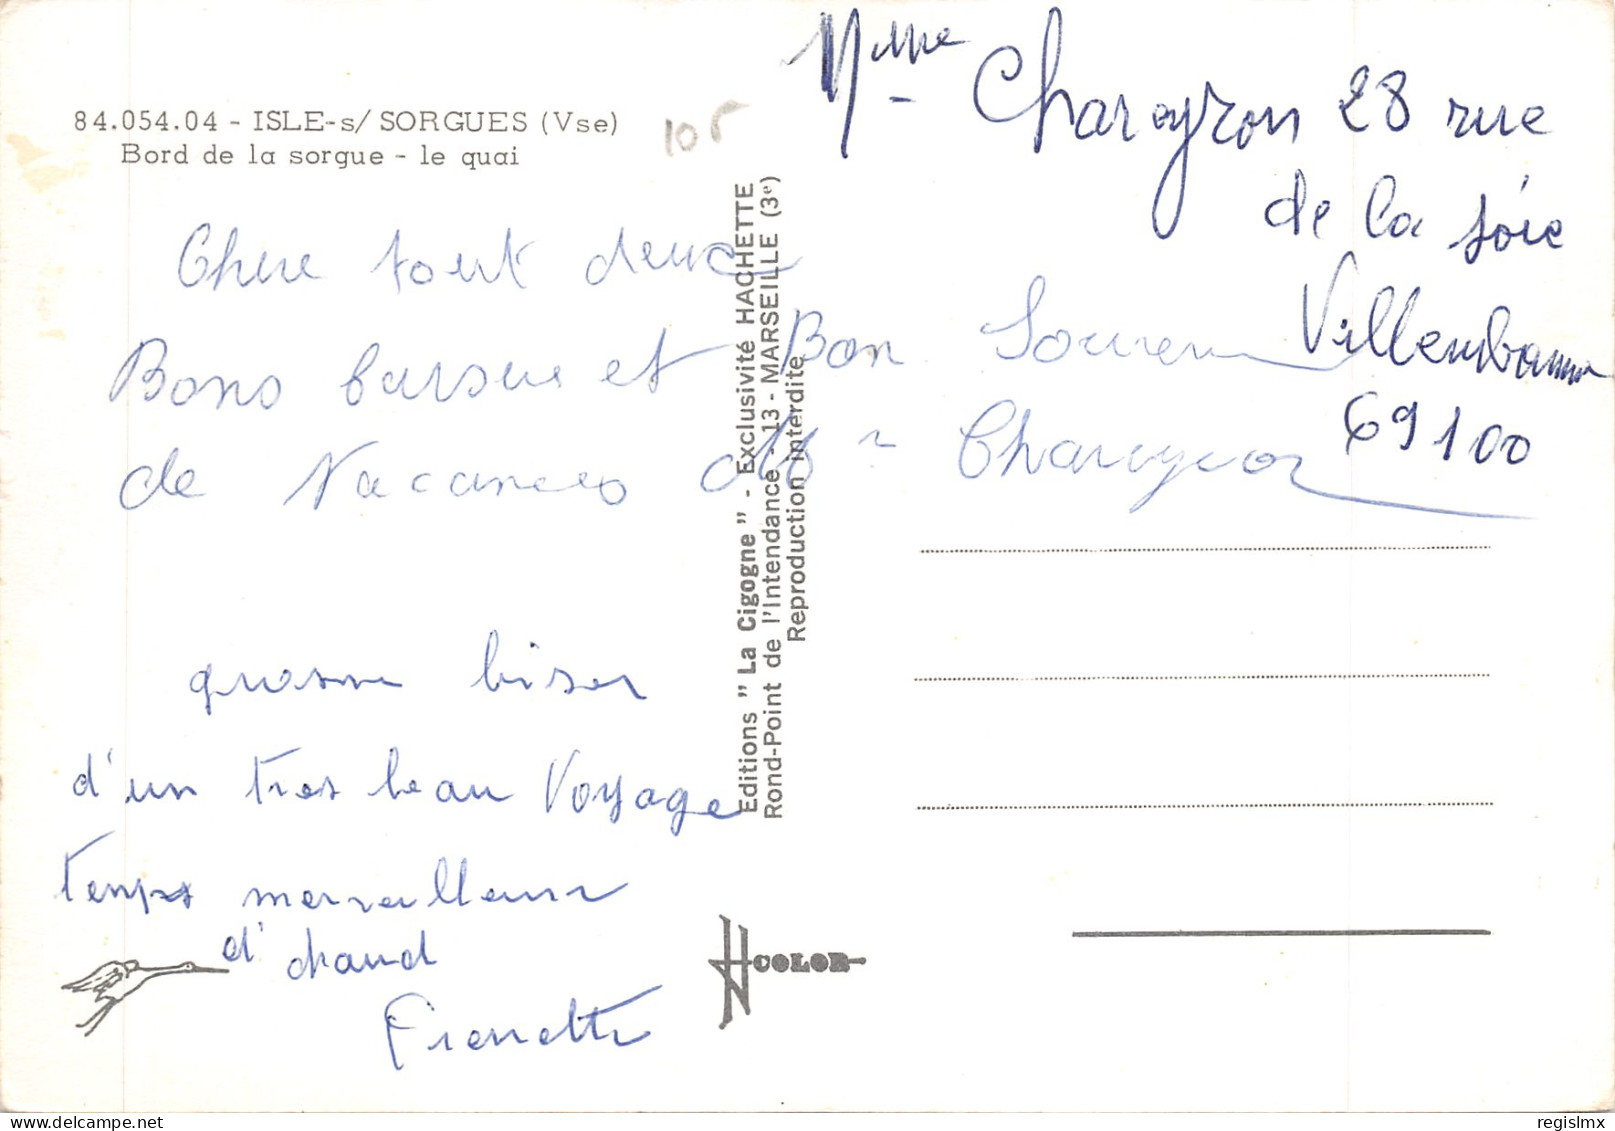 84.054.04 - ISLE-s/ SORGUES (Vse)
Bord de la sorgue - le quai
105
Chere tout deux
Bons baisers et Bon Souvenir
de Vacances Mr Chareyron
grosse bises
d'un tres beau Voyage
temps merveilleux
d' chaud
Pierrette
Editions " La Cigogne " - Exclusivité HACHETTE
Rond-Point de l'Intendance - 13 - MARSEILLE (3e)
Reproduction interdite
Mme Chareyron 28 rue
de la soie
Villeurbanne
69100
COLOR
regislmx